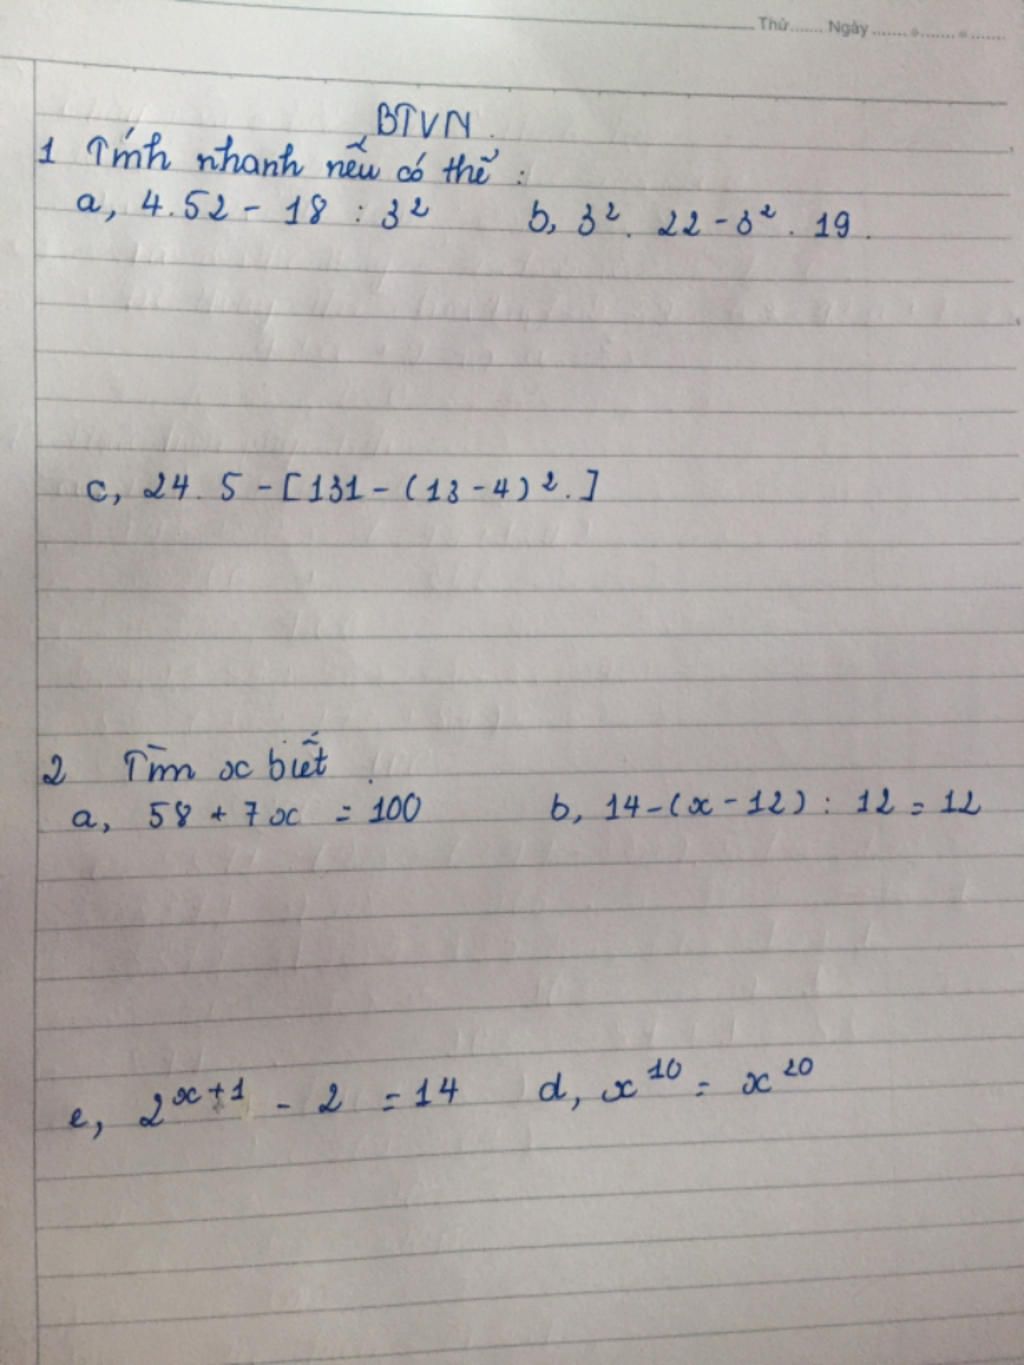 Thứ....... Ngày.......................
BTVN.
1 Tính nhanh nếu có thể :
a, 4.52 - 18 : 3² b, 3². 22 - 3² . 19 .
c, 24. 5 - [131 - (13 - 4)².]
2 Tìm x biết .
a, 58 + 7x = 100 b, 14 - (x - 12) : 12 = 12
e, 2ˣ⁺¹ - 2 = 14 d, x¹⁰ = x²⁰